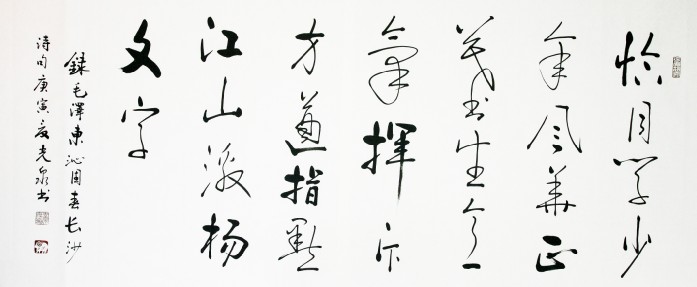 恰同学少
年风华正
茂书生意
氣揮斥
方遒指點
江山激扬
文字
録毛澤東沁园春长沙
诗句庚寅夏光泉书